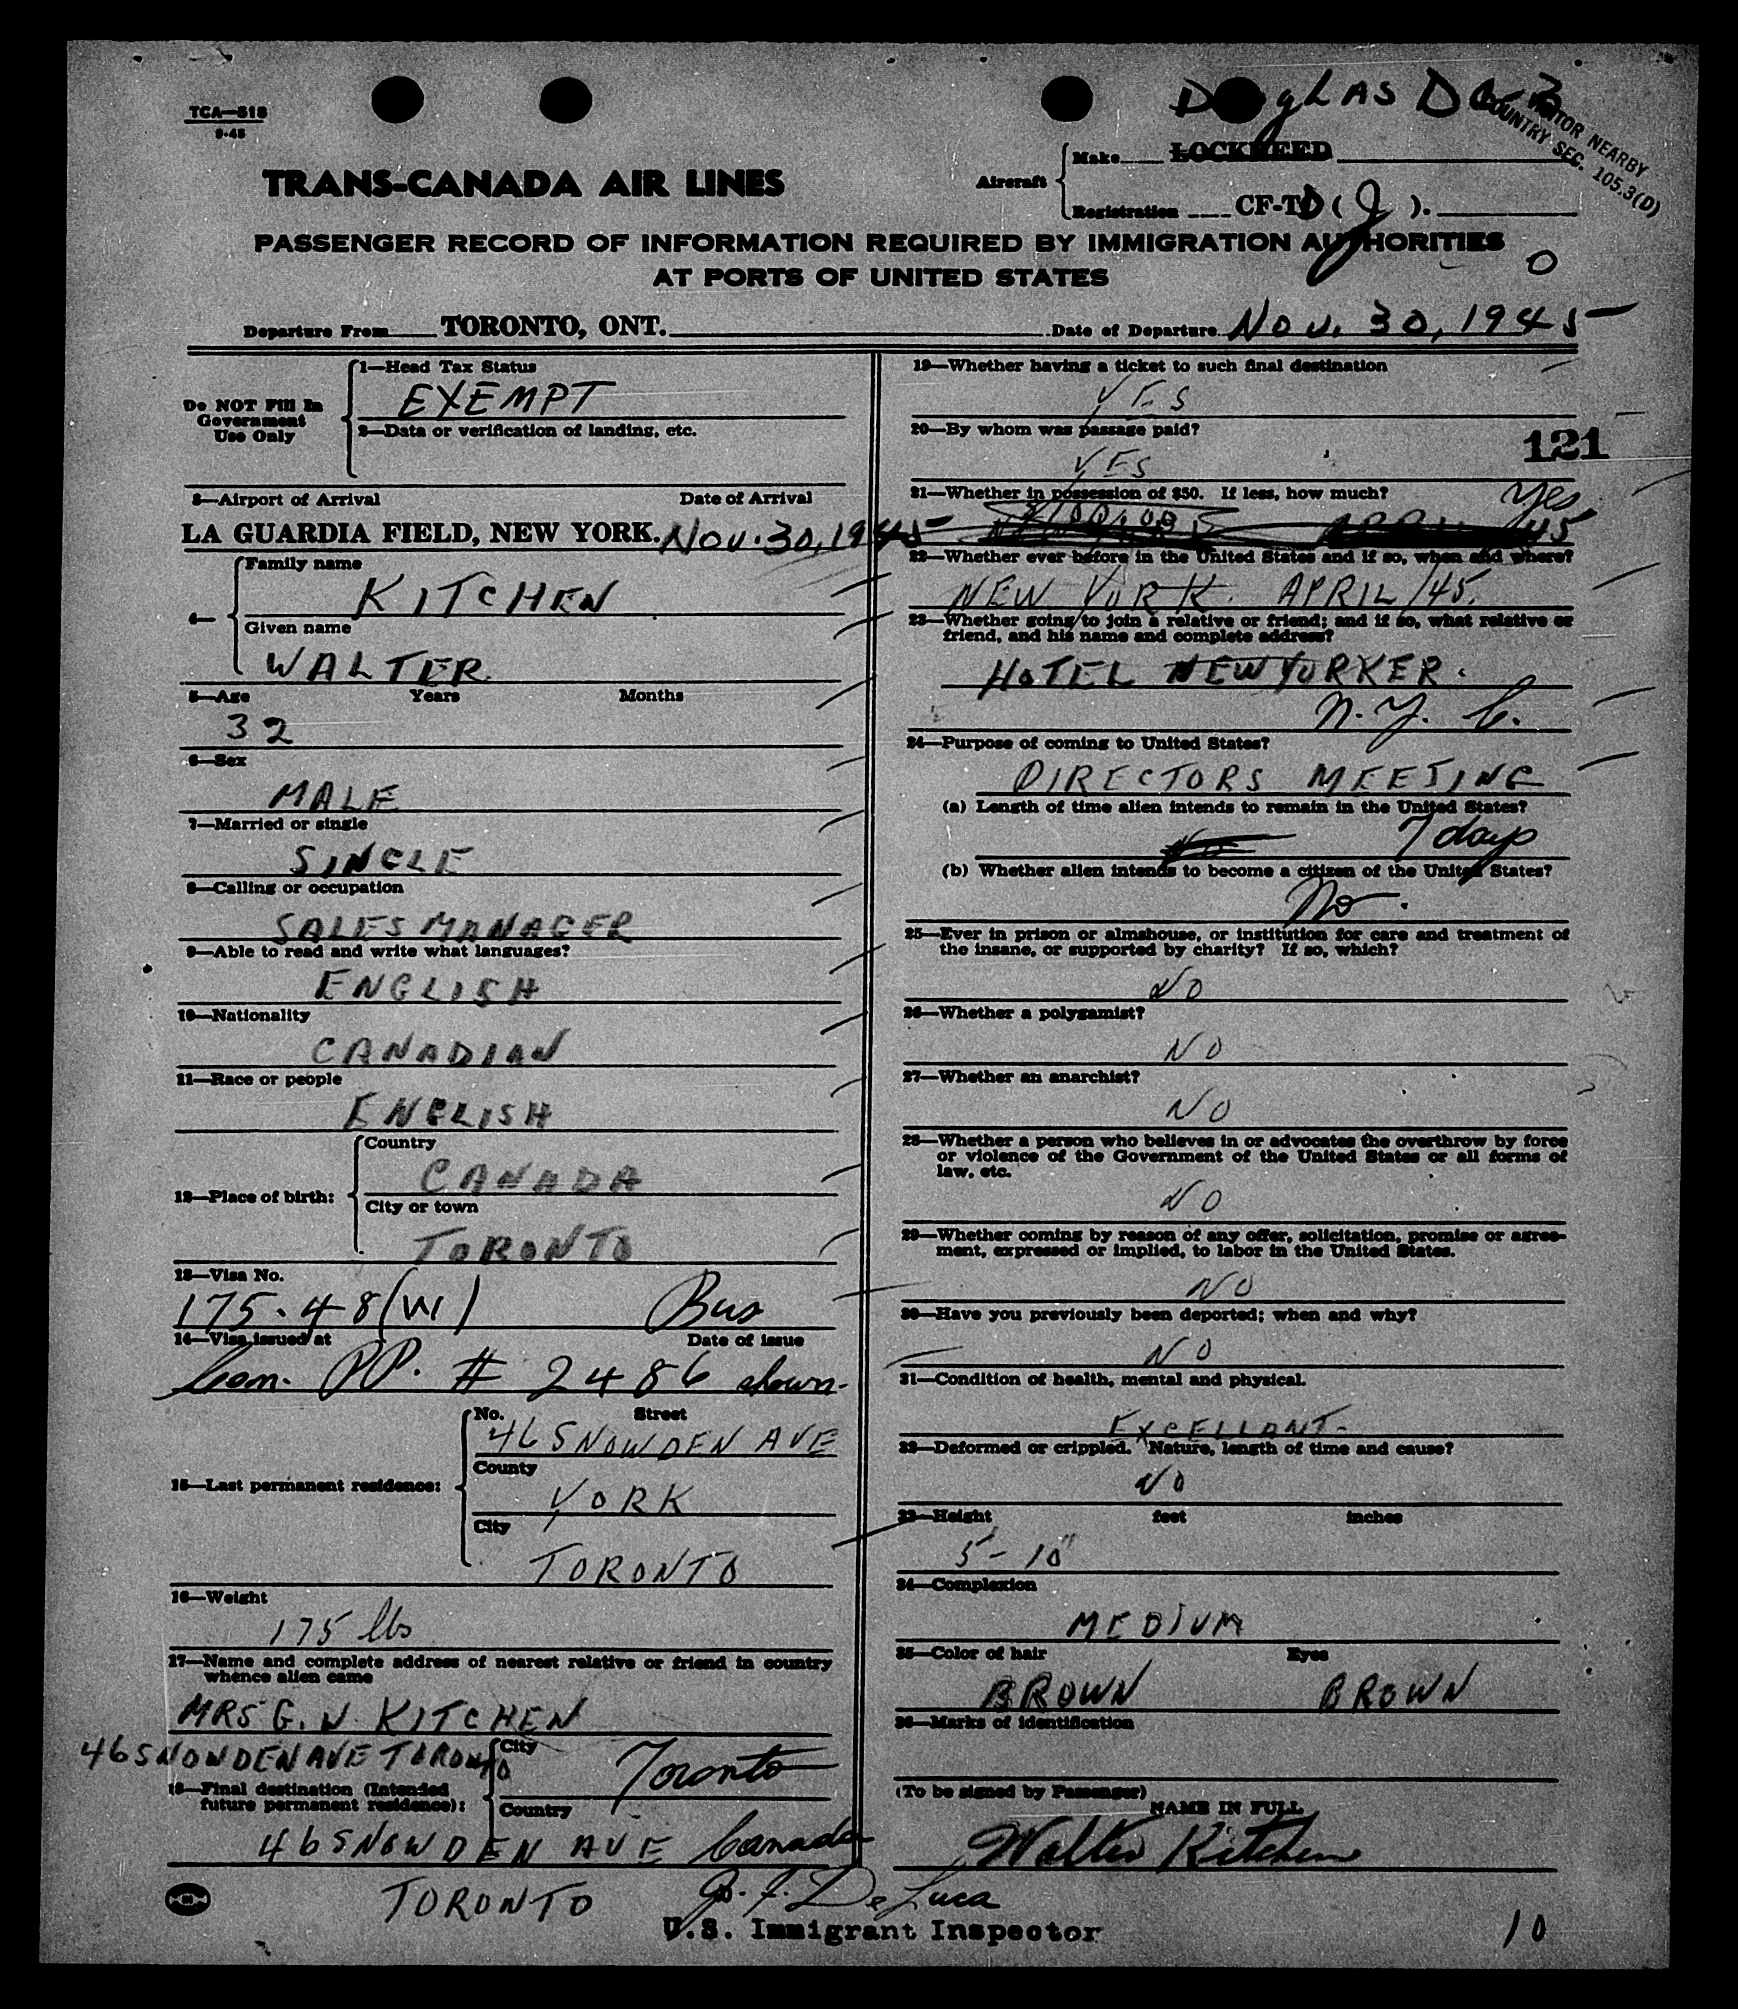 TCA—518
9-45
DouglAS DC-3
VISITOR NEARBY
COUNTRY SEC. 105.3(D)
TRANS-CANADA AIR LINES
Aircraft
Make LOCKHEED
Registration CF-TD ( J ).
PASSENGER RECORD OF INFORMATION REQUIRED BY IMMIGRATION AUTHORITIES
AT PORTS OF UNITED STATES
0
Departure From TORONTO, ONT. Date of Departure Nov. 30, 1945
Do NOT Fill In
Government
Use Only
1—Head Tax Status
EXEMPT
2—Data or verification of landing, etc.
3—Airport of Arrival Date of Arrival
LA GUARDIA FIELD, NEW YORK. Nov. 30, 1945
4—
Family name
KITCHEN
Given name
WALTER
5—Age Years Months
32
6—Sex
MALE
7—Married or single
SINGLE
8—Calling or occupation
SALES MANAGER
9—Able to read and write what languages?
ENGLISH
10—Nationality
CANADIAN
11—Race or people
ENGLISH
12—Place of birth:
Country
CANADA
City or town
TORONTO
13—Visa No.
175.48(W) Bus
14—Visa issued at Date of issue
Can. PP. # 2486 shown.
15—Last permanent residence:
No. Street
46 SNOWDEN AVE
County
YORK
City
TORONTO
16—Weight
175 lbs
17—Name and complete address of nearest relative or friend in country
whence alien came
MRS G. W. KITCHEN
46 SNOWDEN AVE TORONTO
18—Final destination (Intended
future permanent residence):
City
Toronto
Country
46 SNOWDEN AVE Canada
TORONTO
19—Whether having a ticket to such final destination
YES
20—By whom was passage paid?
YES
121
21—Whether in possession of $50. If less, how much?
Yes
22—Whether ever before in the United States and if so, when and where?
NEW YORK. APRIL/45.
23—Whether going to join a relative or friend; and if so, what relative or
friend, and his name and complete address?
HOTEL NEW YORKER.
N.Y.C.
24—Purpose of coming to United States?
DIRECTORS MEETING
(a) Length of time alien intends to remain in the United States?
7 days
(b) Whether alien intends to become a citizen of the United States?
No.
25—Ever in prison or almshouse, or institution for care and treatment of
the insane, or supported by charity? If so, which?
NO
26—Whether a polygamist?
NO
27—Whether an anarchist?
NO
28—Whether a person who believes in or advocates the overthrow by force
or violence of the Government of the United States or all forms of
law, etc.
NO
29—Whether coming by reason of any offer, solicitation, promise or agree-
ment, expressed or implied, to labor in the United States.
NO
30—Have you previously been deported; when and why?
NO
31—Condition of health, mental and physical.
EXCELLANT-
32—Deformed or crippled. Nature, length of time and cause?
NO
33—Height feet inches
5-10"
34—Complexion
MEDIUM
35—Color of hair Eyes
BROWN BROWN
36—Marks of identification
(To be signed by Passenger)
NAME IN FULL
Walter Kitchen
J. J. DeLuca
U.S. Immigrant Inspector
10